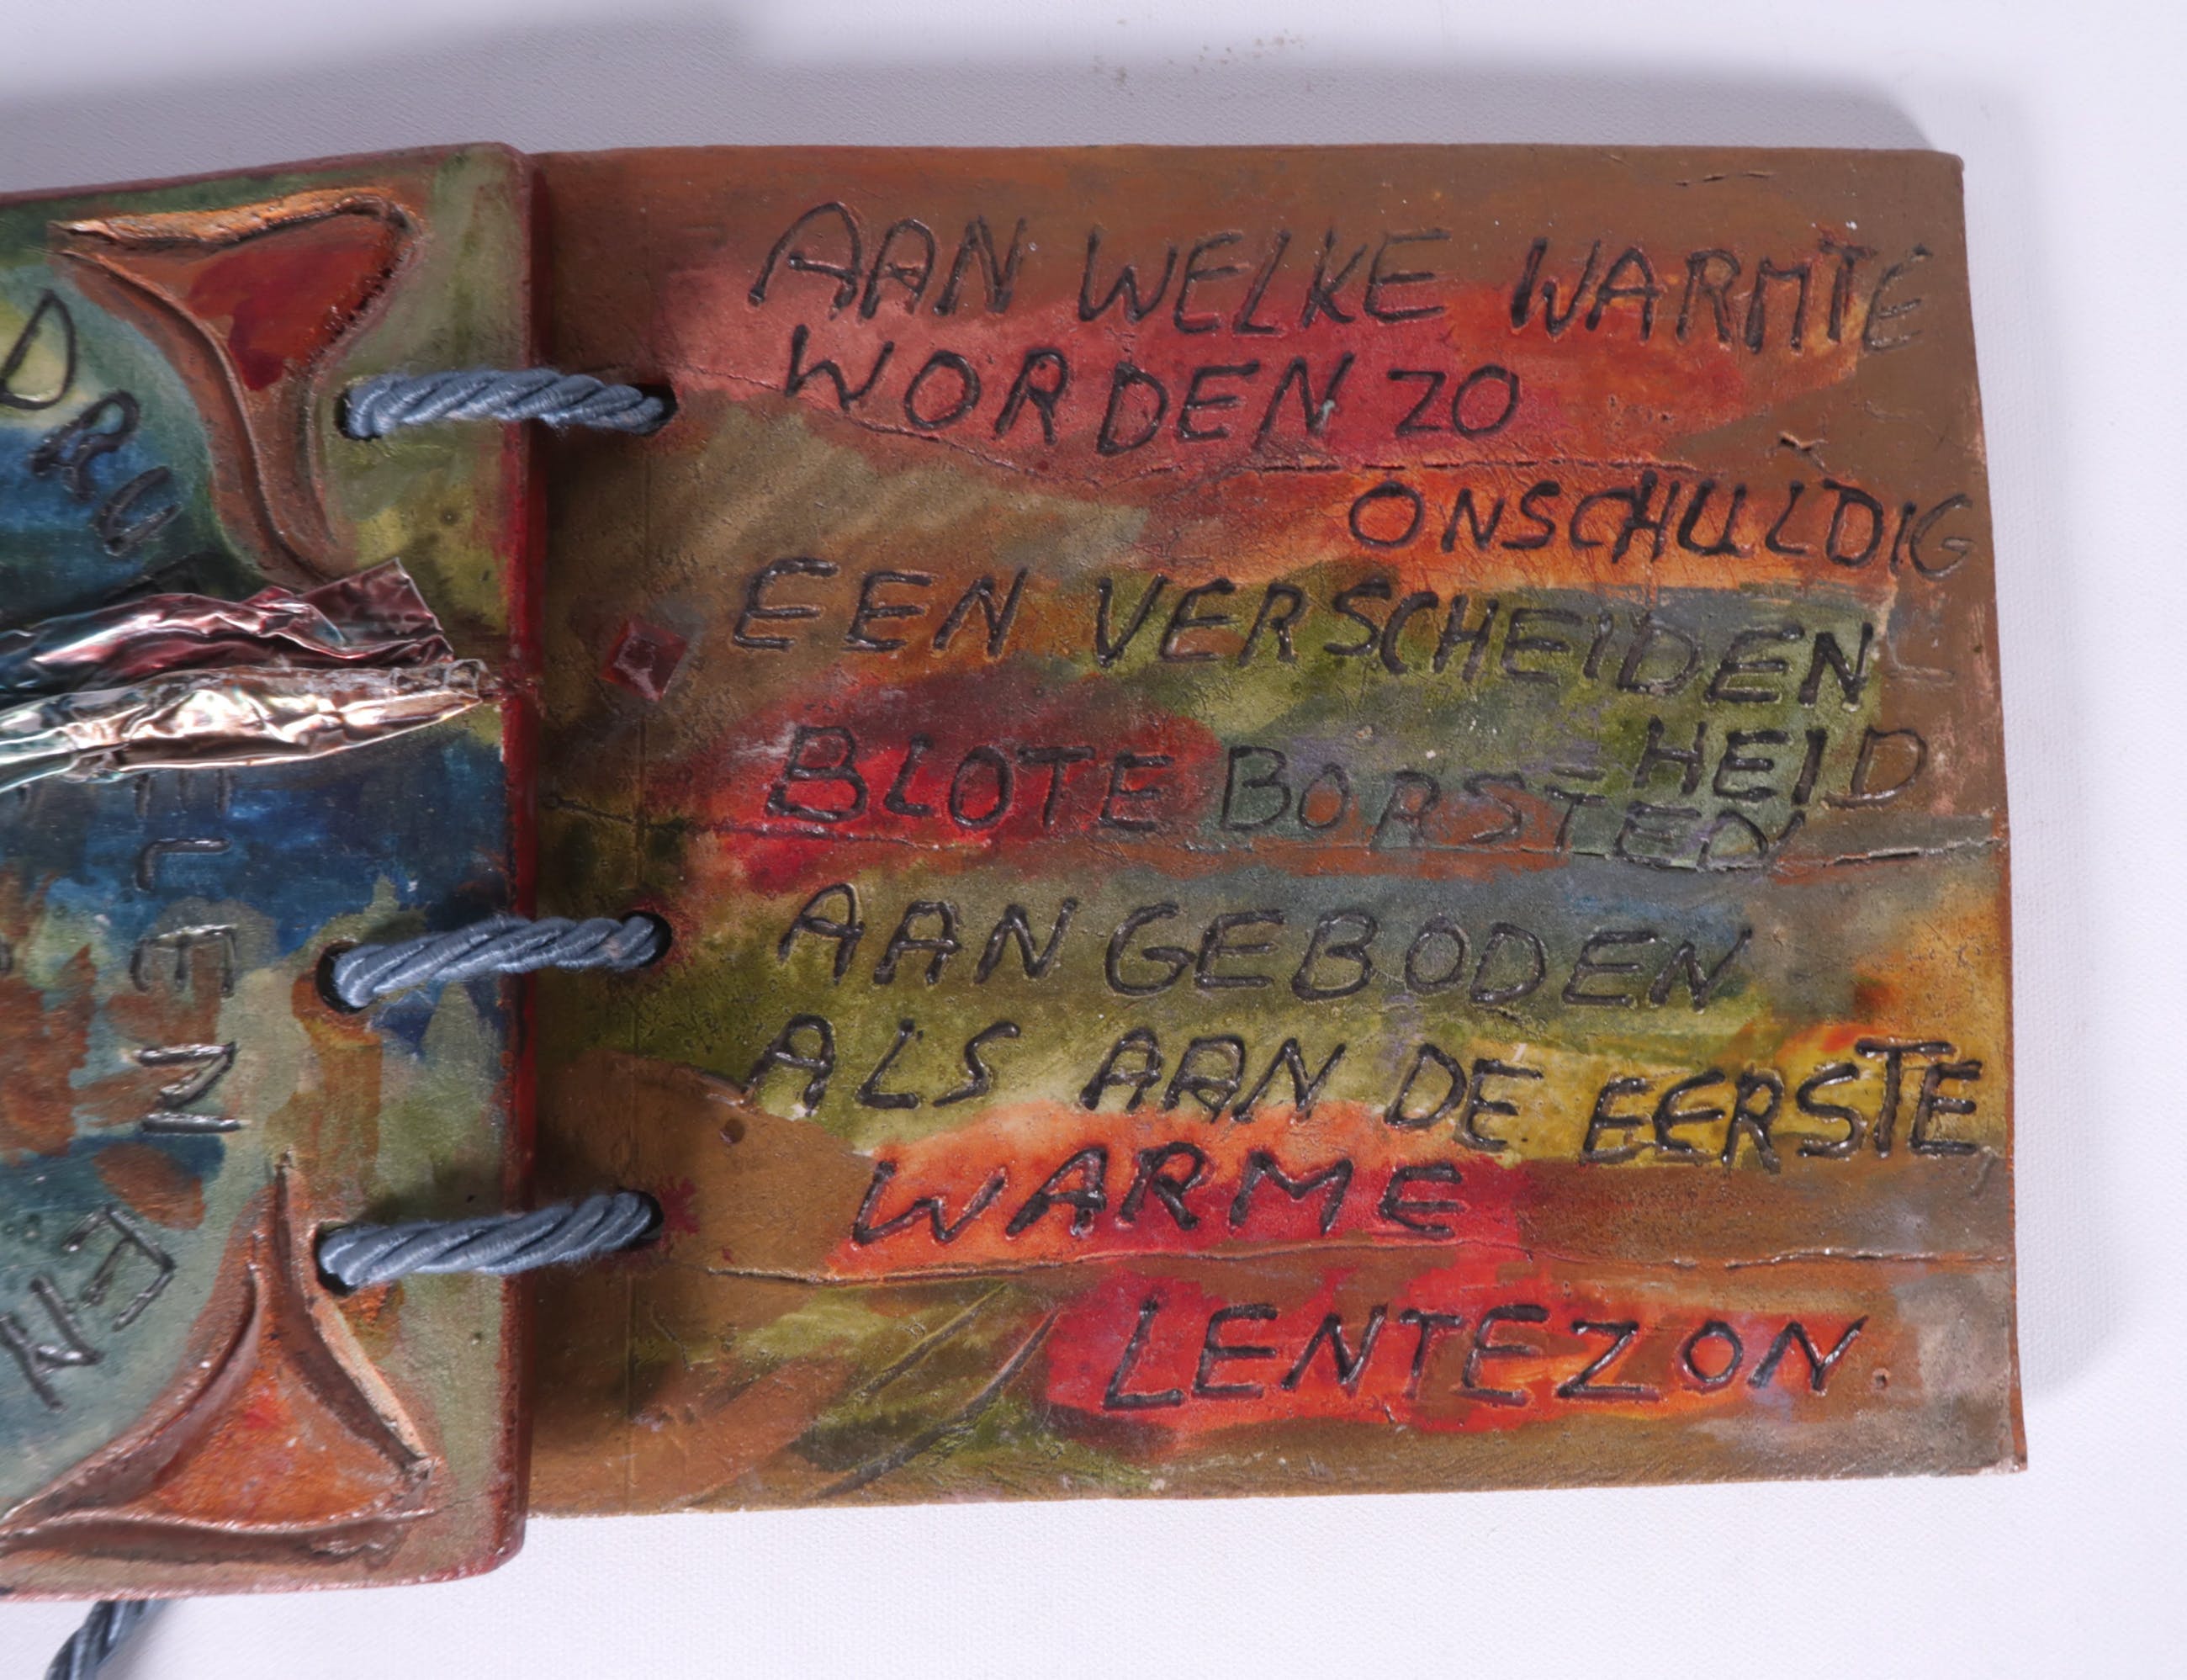 AAN WELKE WARMTE
WORDEN ZO
ONSCHULDIG
EEN VERSCHEIDEN
-HEID
BLOTE BORSTEN
AANGEBODEN
ALS AAN DE EERSTE
WARME
LENTEZON.
DRU
ELLEN
EN